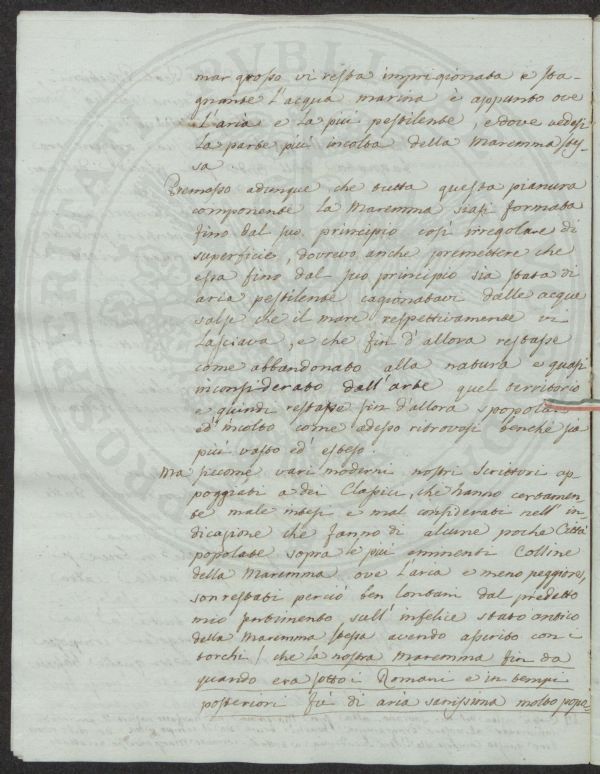 mar grosso vi resta imprigionata e sta-
gnante l'acqua marina è appunto ove
l'aria è la più pestilente, e dove vedesi
la parte più incolta della Maremma stes-
sa
Premesso adunque che tutta questa pianura
componente la Maremma siasi formata
fino dal suo principio così irregolare di
superficie, dovrevo anche premettere che
essa fino dal suo principio sia stata di
aria pestilente cagionatavi dalle acque
salse che il mare respettivamente vi
lasciava, e che fin d'allora restasse
come abbandonato alla natura e quasi
inconsiderato dall'arte quel territorio
e quindi restasse fin d'allora spopola
ed' incolto come adesso ritrovasi benché sia
più vasto ed' esteso.
Ma siccome vari moderni nostri Scrittori ap-
poggiati a dei Classici, che hanno certamen-
te male intesi e mal considerati nell' in-
dicazione che fanno di alcune poche Città
popolate sopra le più eminenti Colline
della Maremma ove l'aria è meno peggiore,
son restati perciò ben lontani dal predetto
mio sentimento sull' infelice stato antico
della Maremma stessa avendo asserito con i
torchi che la nostra Maremma fin da
quando era sotto i Romani e in tempi
posteriori fù di aria sanissima molto popo-